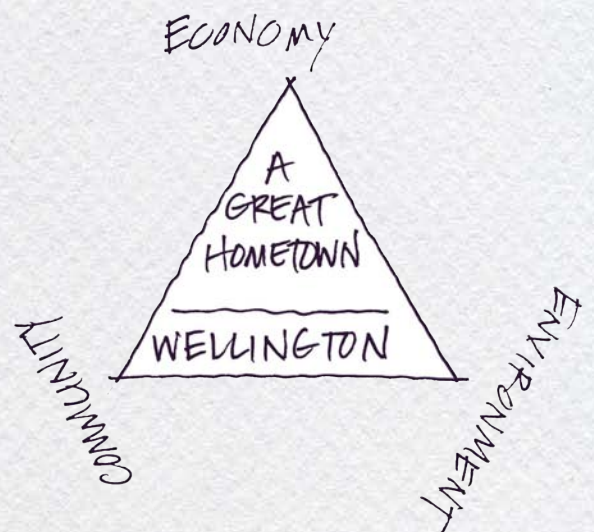 ECONOMY
A
GREAT
HOMETOWN
WELLINGTON
COMMUNITY
ENVIRONMENT